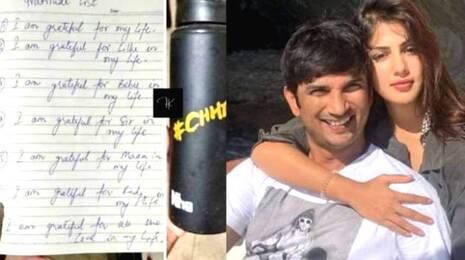 Gratitude List
I am grateful for my life.
I am grateful for Lillu in
my life.
I am grateful for Bebu in
my life.
I am grateful for Sir in
my life.
I am grateful for Maam in
my life.
I am grateful for
in my life.
I am grateful for all the
love in my life.
#CHH